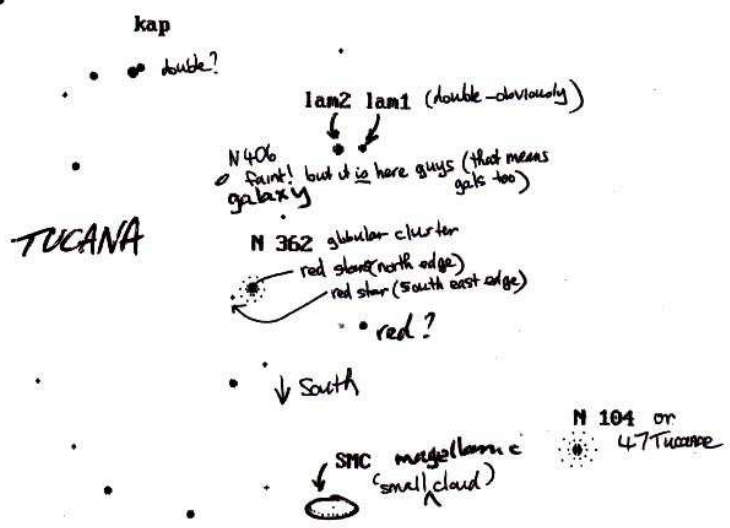 kap
double?
lam2 lam1 (double - obviously)
N 406
faint! but it is here guys (that means
galaxy gals too)
TUCANA
N 362 globular cluster
red stars (north edge)
red star (South east edge)
red?
South
N 104 or
47 Tucanae
SMC magellanic
(small cloud)